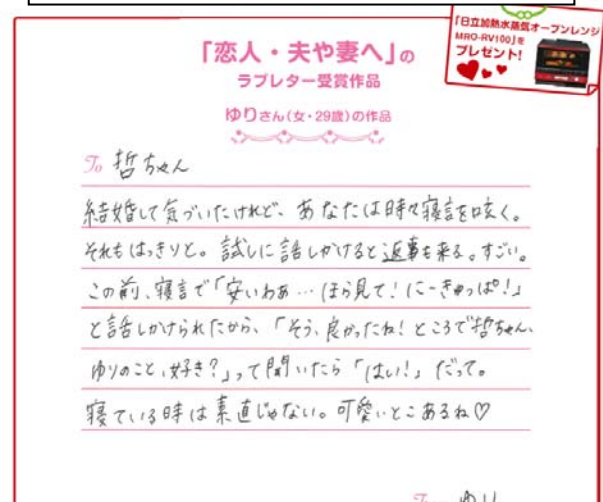 「日立加熱水蒸気オーブンレンジ
MRO-RV100」を
プレゼント!
「恋人・夫や妻へ」の
ラブレター受賞作品
ゆりさん(女・29歳)の作品
To 哲ちゃん
結婚して気づいたけれど、あなたは時々寝言を呟く。
それもはっきりと。試しに話しかけると返事も来る。すごい。
この前、寝言で「安いわぁ…ほら見て!にーきゅっぱ!」
と話しかけられたから、「そう、良かったね!ところで哲ちゃん、
ゆりのこと、好き?」って聞いたら「はい!」だって。
寝ている時は素直じゃない。可愛いとこあるね♡
From ゆり